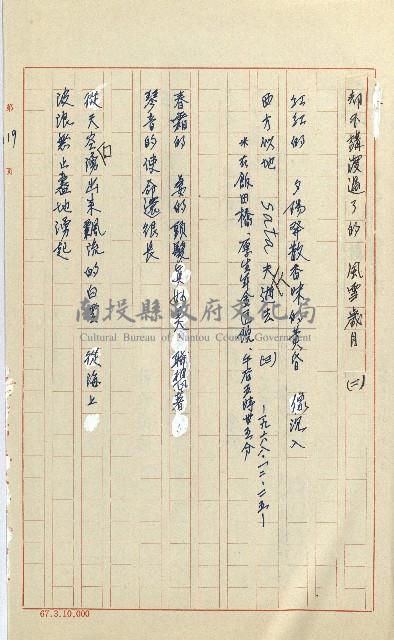 却不講渡過了的　風雪歲月　(二)
紅紅的　夕陽發散香味的黃昏　像沉入
西方的地　Sata 夫進去　(四)
※在飯田橋、厚生年金医院　午后五時廿五分
一九六八、一二、二五
春霜的　妻的頭髮真好　天　聯想着
琴音的使命還很長
從天空湧出来飄流的白雲　從海上
波浪無止盡地湧起
第 19 頁
67.3.10.000
南投縣政府文化局
Cultural Bureau of Nantou County Government